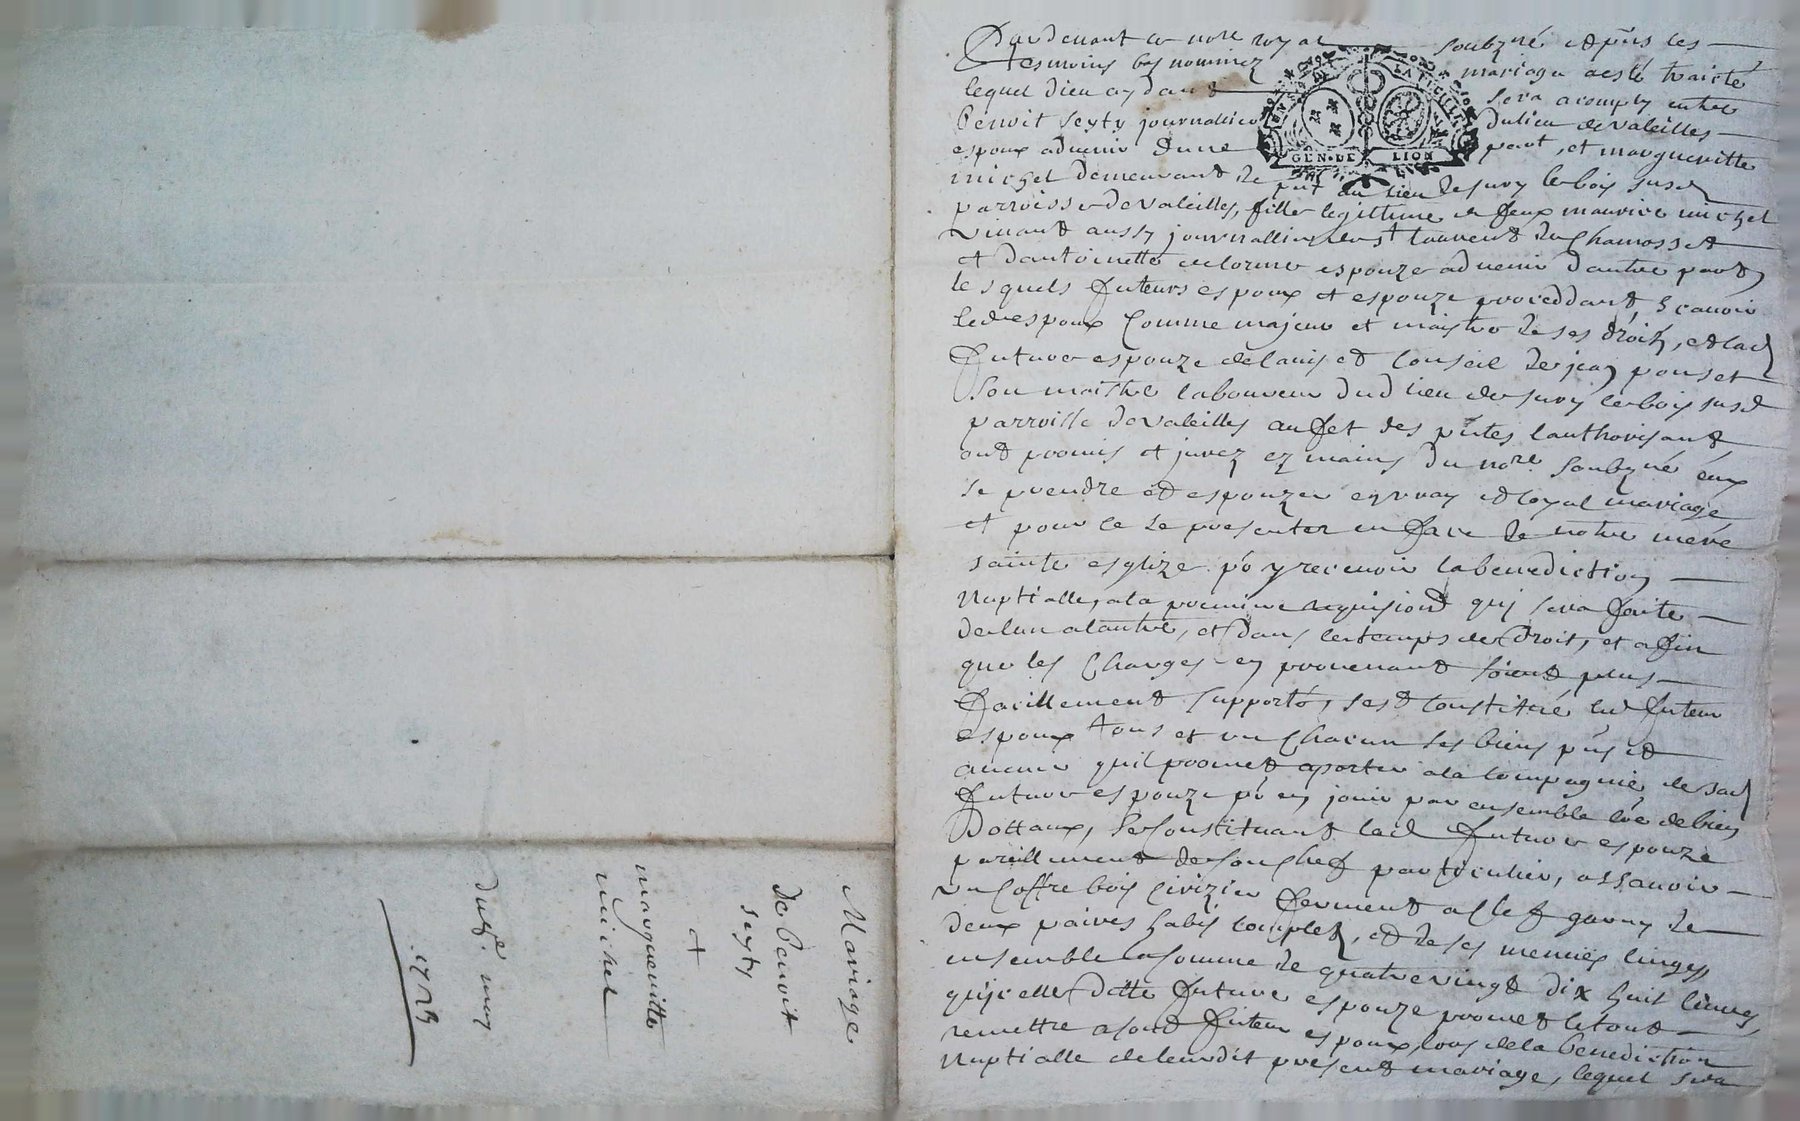 Pardevant le no.re royal soubzné et p.ns les
tesmoins bas nommez mariage a esté traicté
lequel dieu aydant sera accomply entre
Benoit seyty journallier du lieu de valeilles
espoux advenir dune part, et margueritte
michel demeurant de p.nt au lieu de sury le bois susd
parroisse de valeilles, fille legittime de feux maurice michel
vivant aussy journallier de s.t Laurent de Chamosset
et dantoinette delorme espouze advenir dautre part
lesquels futeurs espoux et espouze proceddant, sçavoir
led espoux comme majeur et maistre de ses droits, et lad
future espouze de lavis et conseil de jean ponset
son maistre laboureur dud lieu de sury le bois susd
parroisse de valeilles au fet des p.ntes lauthorisant
ont promis et jurez ez mains du no.re soubzné eux
se prendre et espouzer en vray et loyal mariage
et pour ce se presenter en face de notre mere
sainte esglize po y recevoir la benediction
Nuptialle, a la premiere requision qui sera faite
de lun a lautre, et dans le temps de droit, et afin
que les charges en provenant soient plus
facillement supporté, sest constitué led futeur
espoux tous et un chacun ses biens p.ns et
avenir quil promet aporter a la compagnie de sad
future espouze po en jouir par ensemble
Dottaux, se constituant lad future espouze
pareillement de son chef particulier, assavoir
un coffre bois cirizier fermant a clef garny de
deux paires habis complets, et de ses menües linges,
ensemble la somme de quatre vingt dix huit livres,
qu'icelle ditte future espouze promet le tout
remettre a sond futeur espoux, lors de la benediction
Nuptialle de leurdit present mariage, lequel sera
GEN. DE LION
Mariage
de Benoit
seyty
+
margueritte
michel
du 9.e may
1723